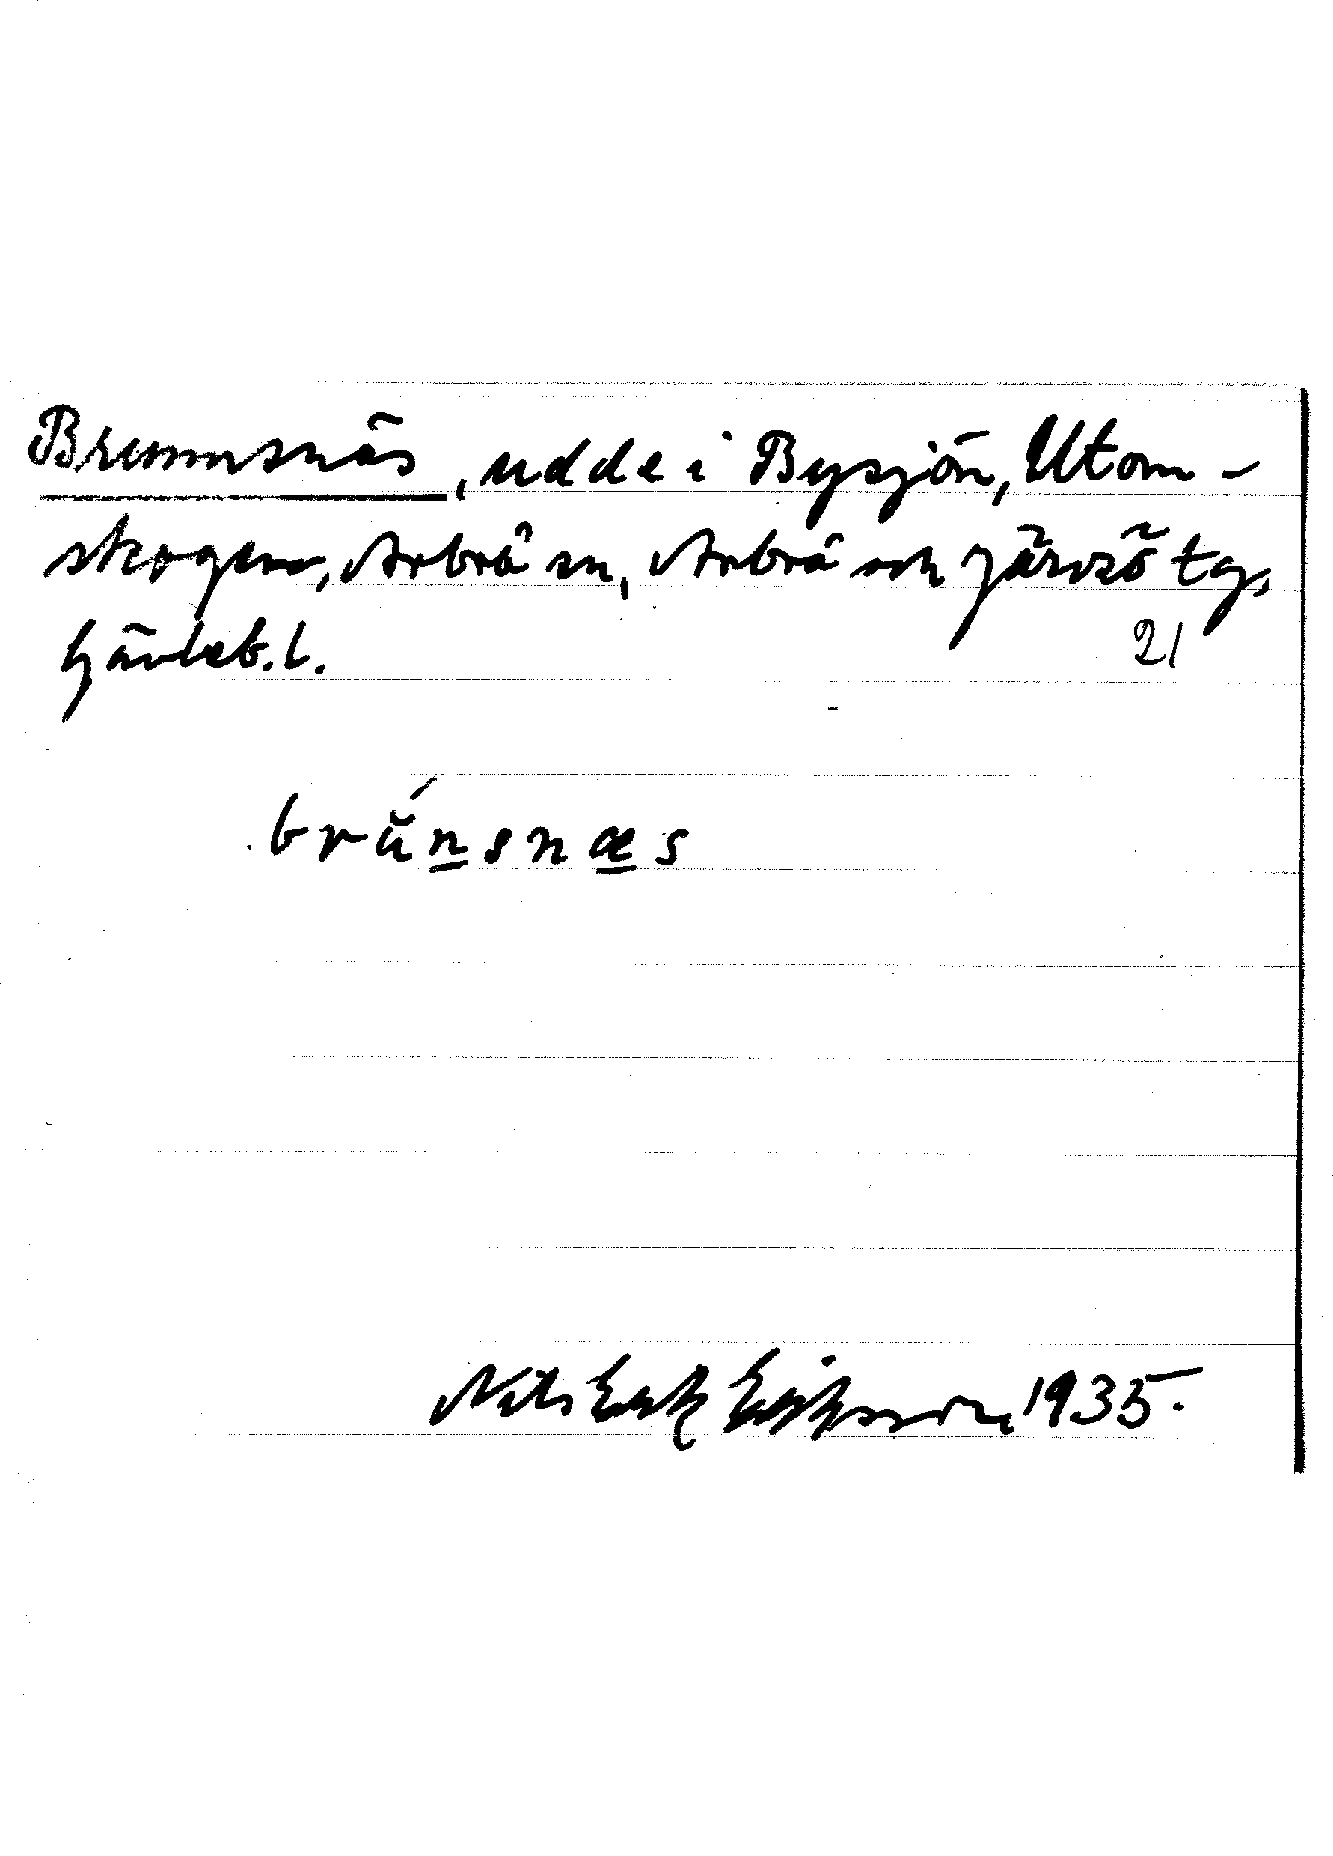 Brunnsnäs, udde i Bysjön, Utom-
skogen, Arbrå sn, Arbrå och Järvsö tg,
Gävleb. l.
21
brúnsnæs
Nils Erik Eriksson 1935.